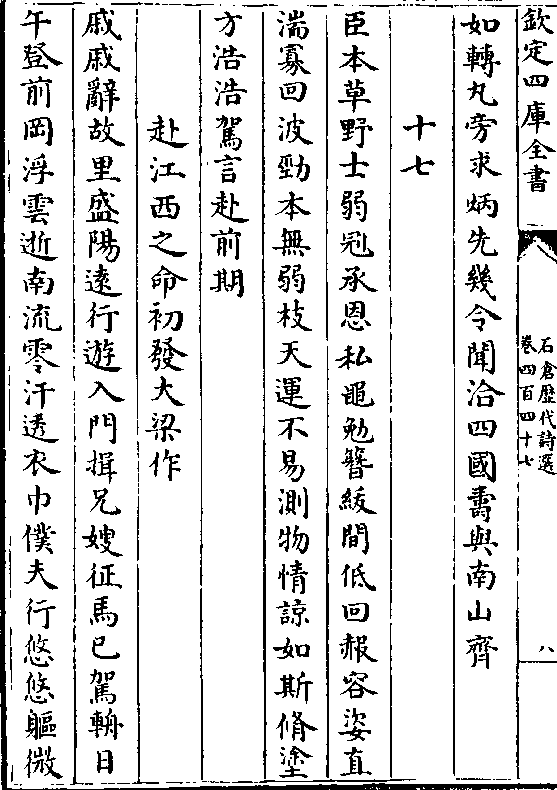 欽定四庫全書
石倉歷代詩選
卷四百四十七
八
如轉丸旁求炳先幾令聞洽四國壽與南山齊
十七
臣本草野士弱冠承恩私黽勉簪紱間低回赧容姿直
湍寡回波勁本無弱枝天運不易測物情諒如斯脩塗
方浩浩駕言赴前期
赴江西之命初發大梁作
戚戚辭故里盛陽遠行遊入門揖兄嫂征馬已駕輈日
午登前岡浮雲逝南流零汗透衣巾僕夫行悠悠軀微